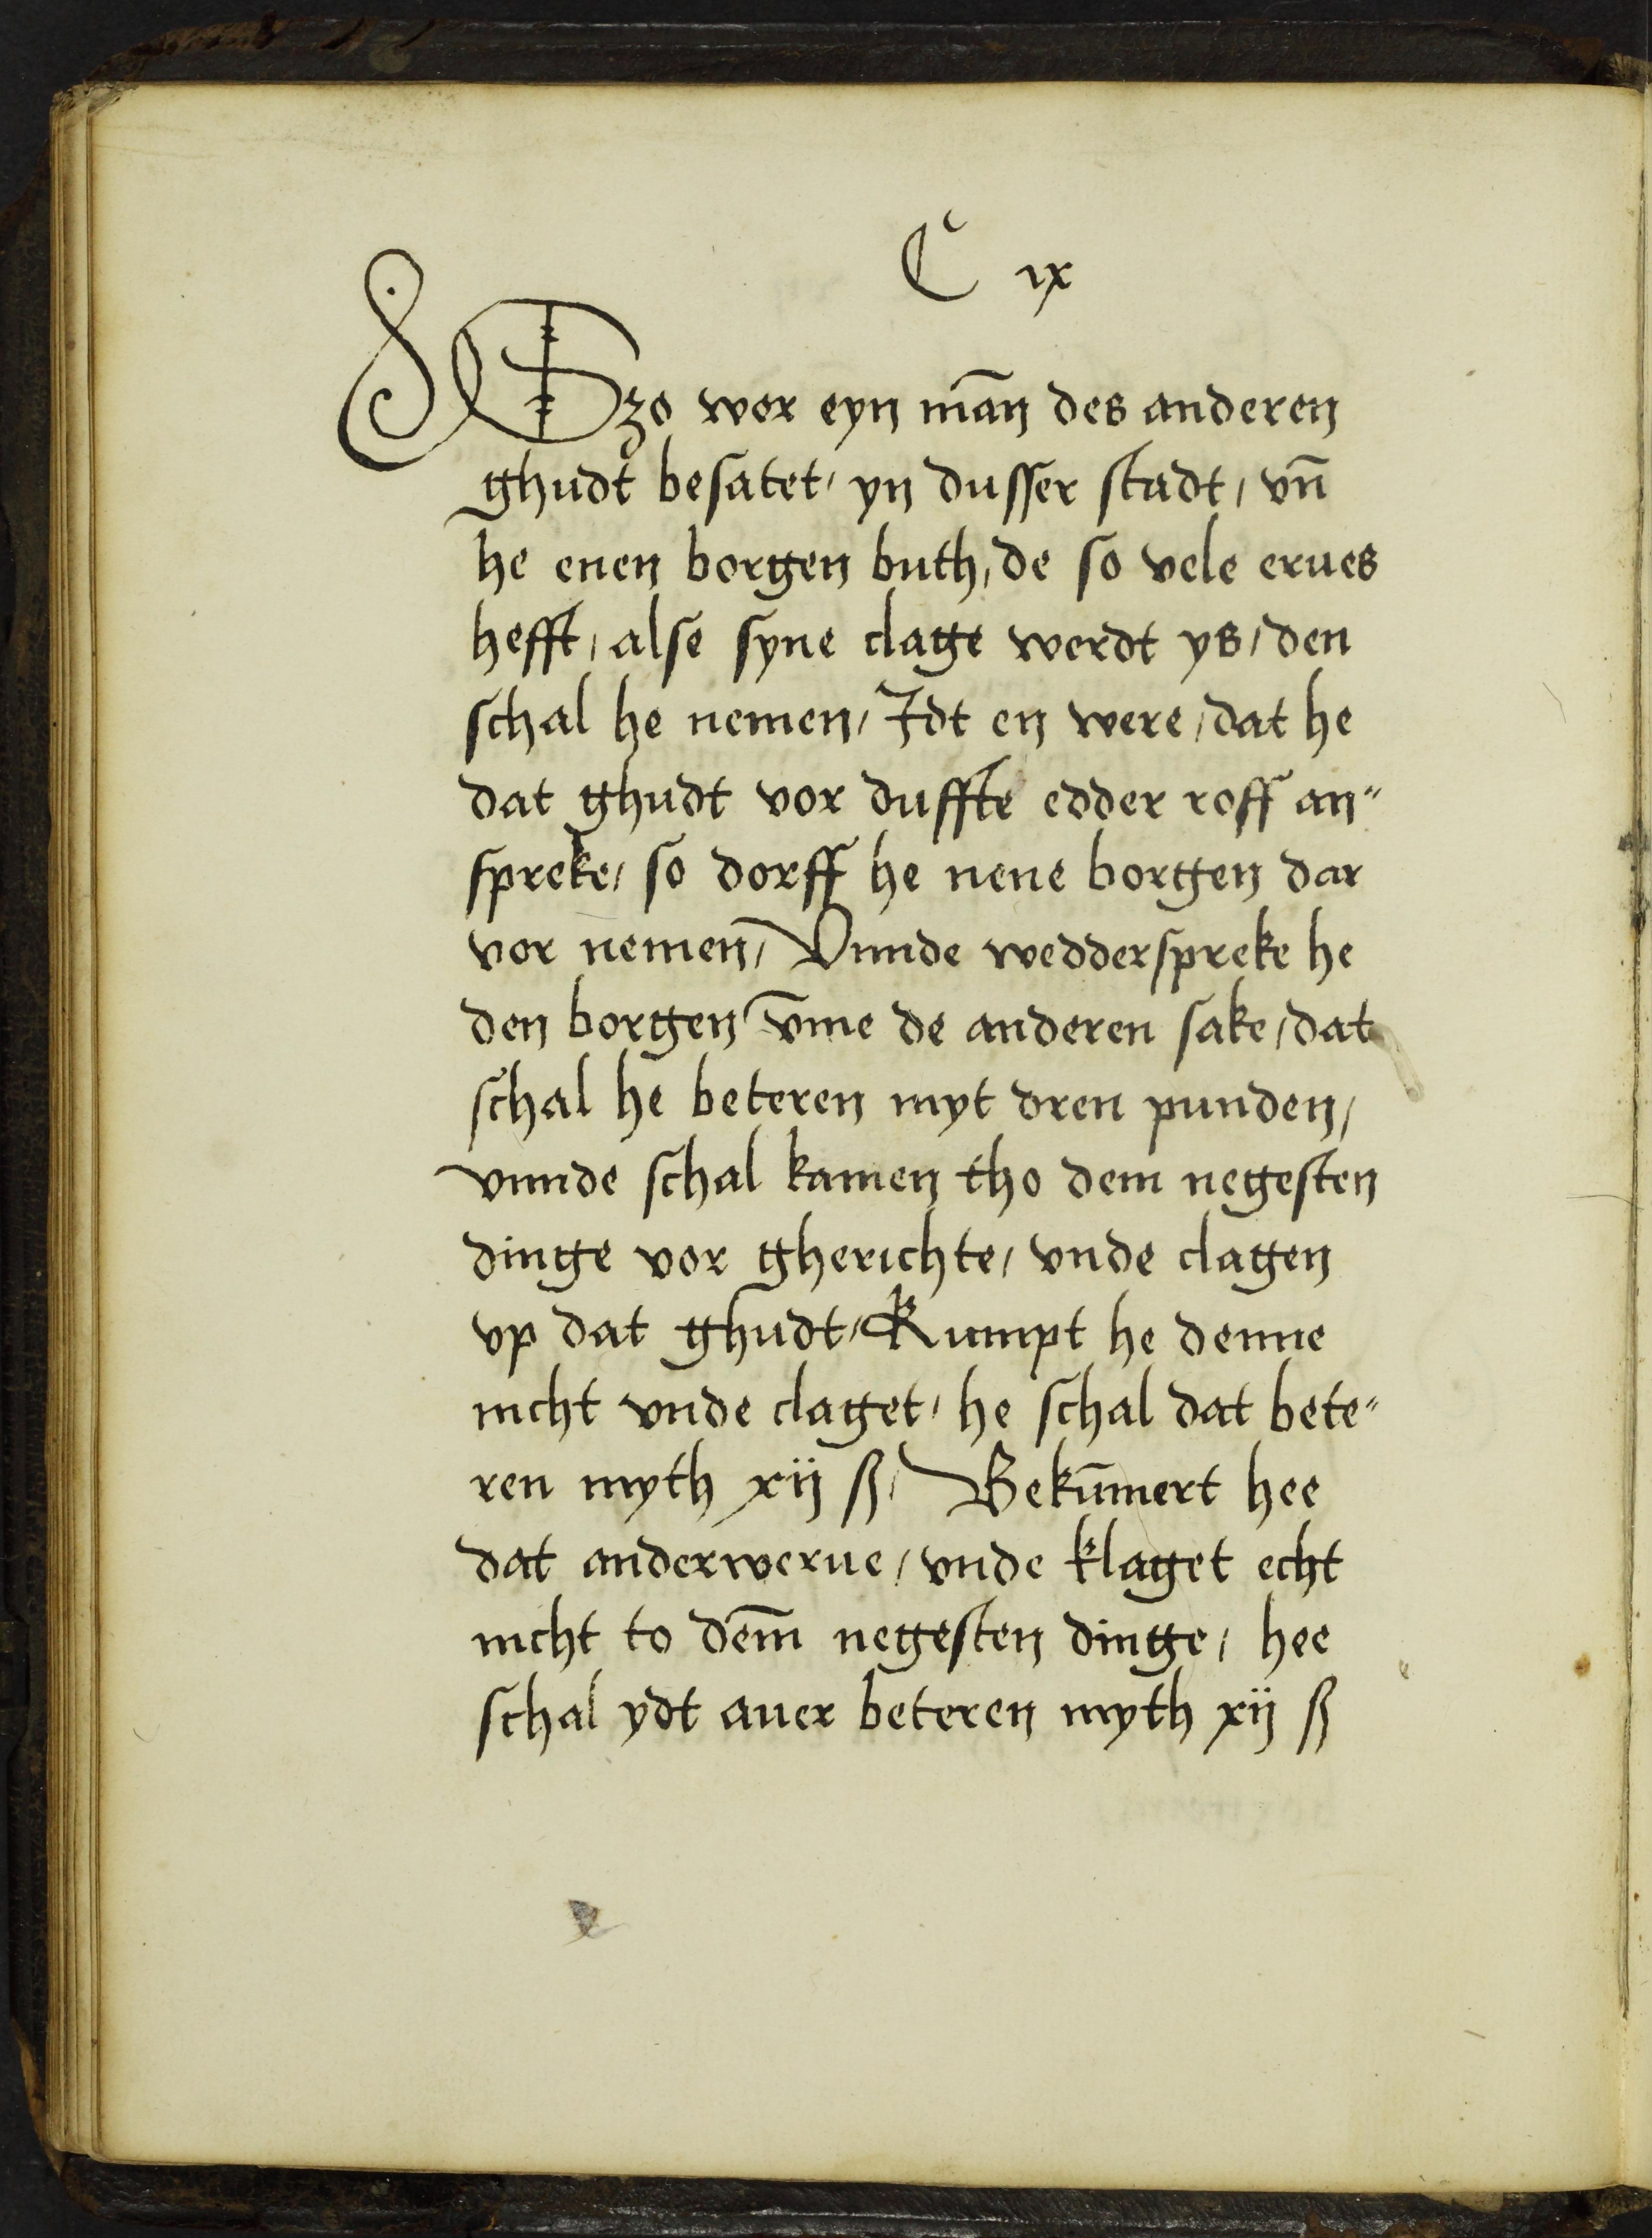 C ix
Szo wor eyn mā̄n des anderen
ghudt besatet / yn dusser stadt / vn̄
he enen borgen buth / de so vele erues
hefft / alse syne clage werdt ys / den
schal he nemen / Jdt en were / dat he
dat ghudt vor duffte edder roff an"
spreke / so dorff he nene borgen dar
vor nemen̄ / Vnnde wedderspreke he
den borgen v̄me de anderen sake / dat
schal he beteren myt dren punden /
vnnde schal kamen tho dem negesten
dinge vor gherichte / vnde clagen
vp dat ghudt / Kumpt he denne
nicht vnde claget / he schal dat bete"
ren myth xij ß / Bekūmert hee
dat anderwerue / vnde klaget echt
nicht to dem̄ negesten dinge / hee
schal ydt auer beteren myth xij ß